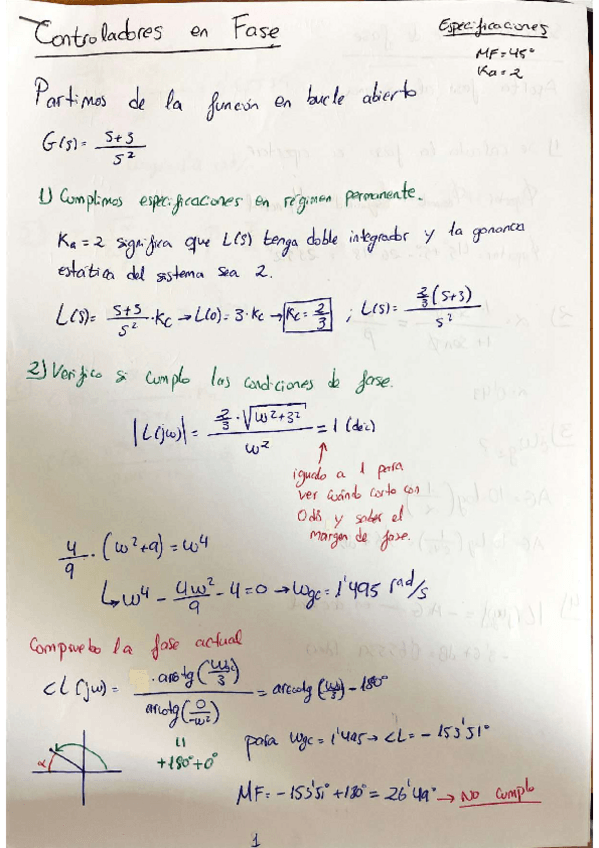 Controladores en Fase
Especificaciones
MF=45°
Ka=2
Partimos de la función en bucle abierto
G(s)= (s+3)/s²
1) Cumplimos especificaciones en régimen permanente.
Ka=2 significa que L(s) tenga doble integrador y la ganancia
estática del sistema sea 2.
L(s)= (s+3)/s² · Kc → L(0)=3·Kc → Kc=2/3 ; L(s)= (2/3(s+3))/s²
2) Verifico si cumplo las condiciones de fase.
|L(jω)|= (2/3·√(ω²+3²))/ω² = 1 (dec)
igualo a 1 para
ver cuándo corto con
0db y saber el
margen de fase.
4/9 · (ω²+9)=ω⁴
↳ ω⁴ - 4ω²/9 - 4=0 → ωgc=1'495 rad/s
Compruebo la fase actual
<L(jω)= arctg(ω/3) / arctg(0/-ω²) = arcotg(ω/3)-180°
+180°+0°
α
para ωgc=1'495 → <L=-153'51°
MF=-153'51°+180°=26'49° → No cumplo
1